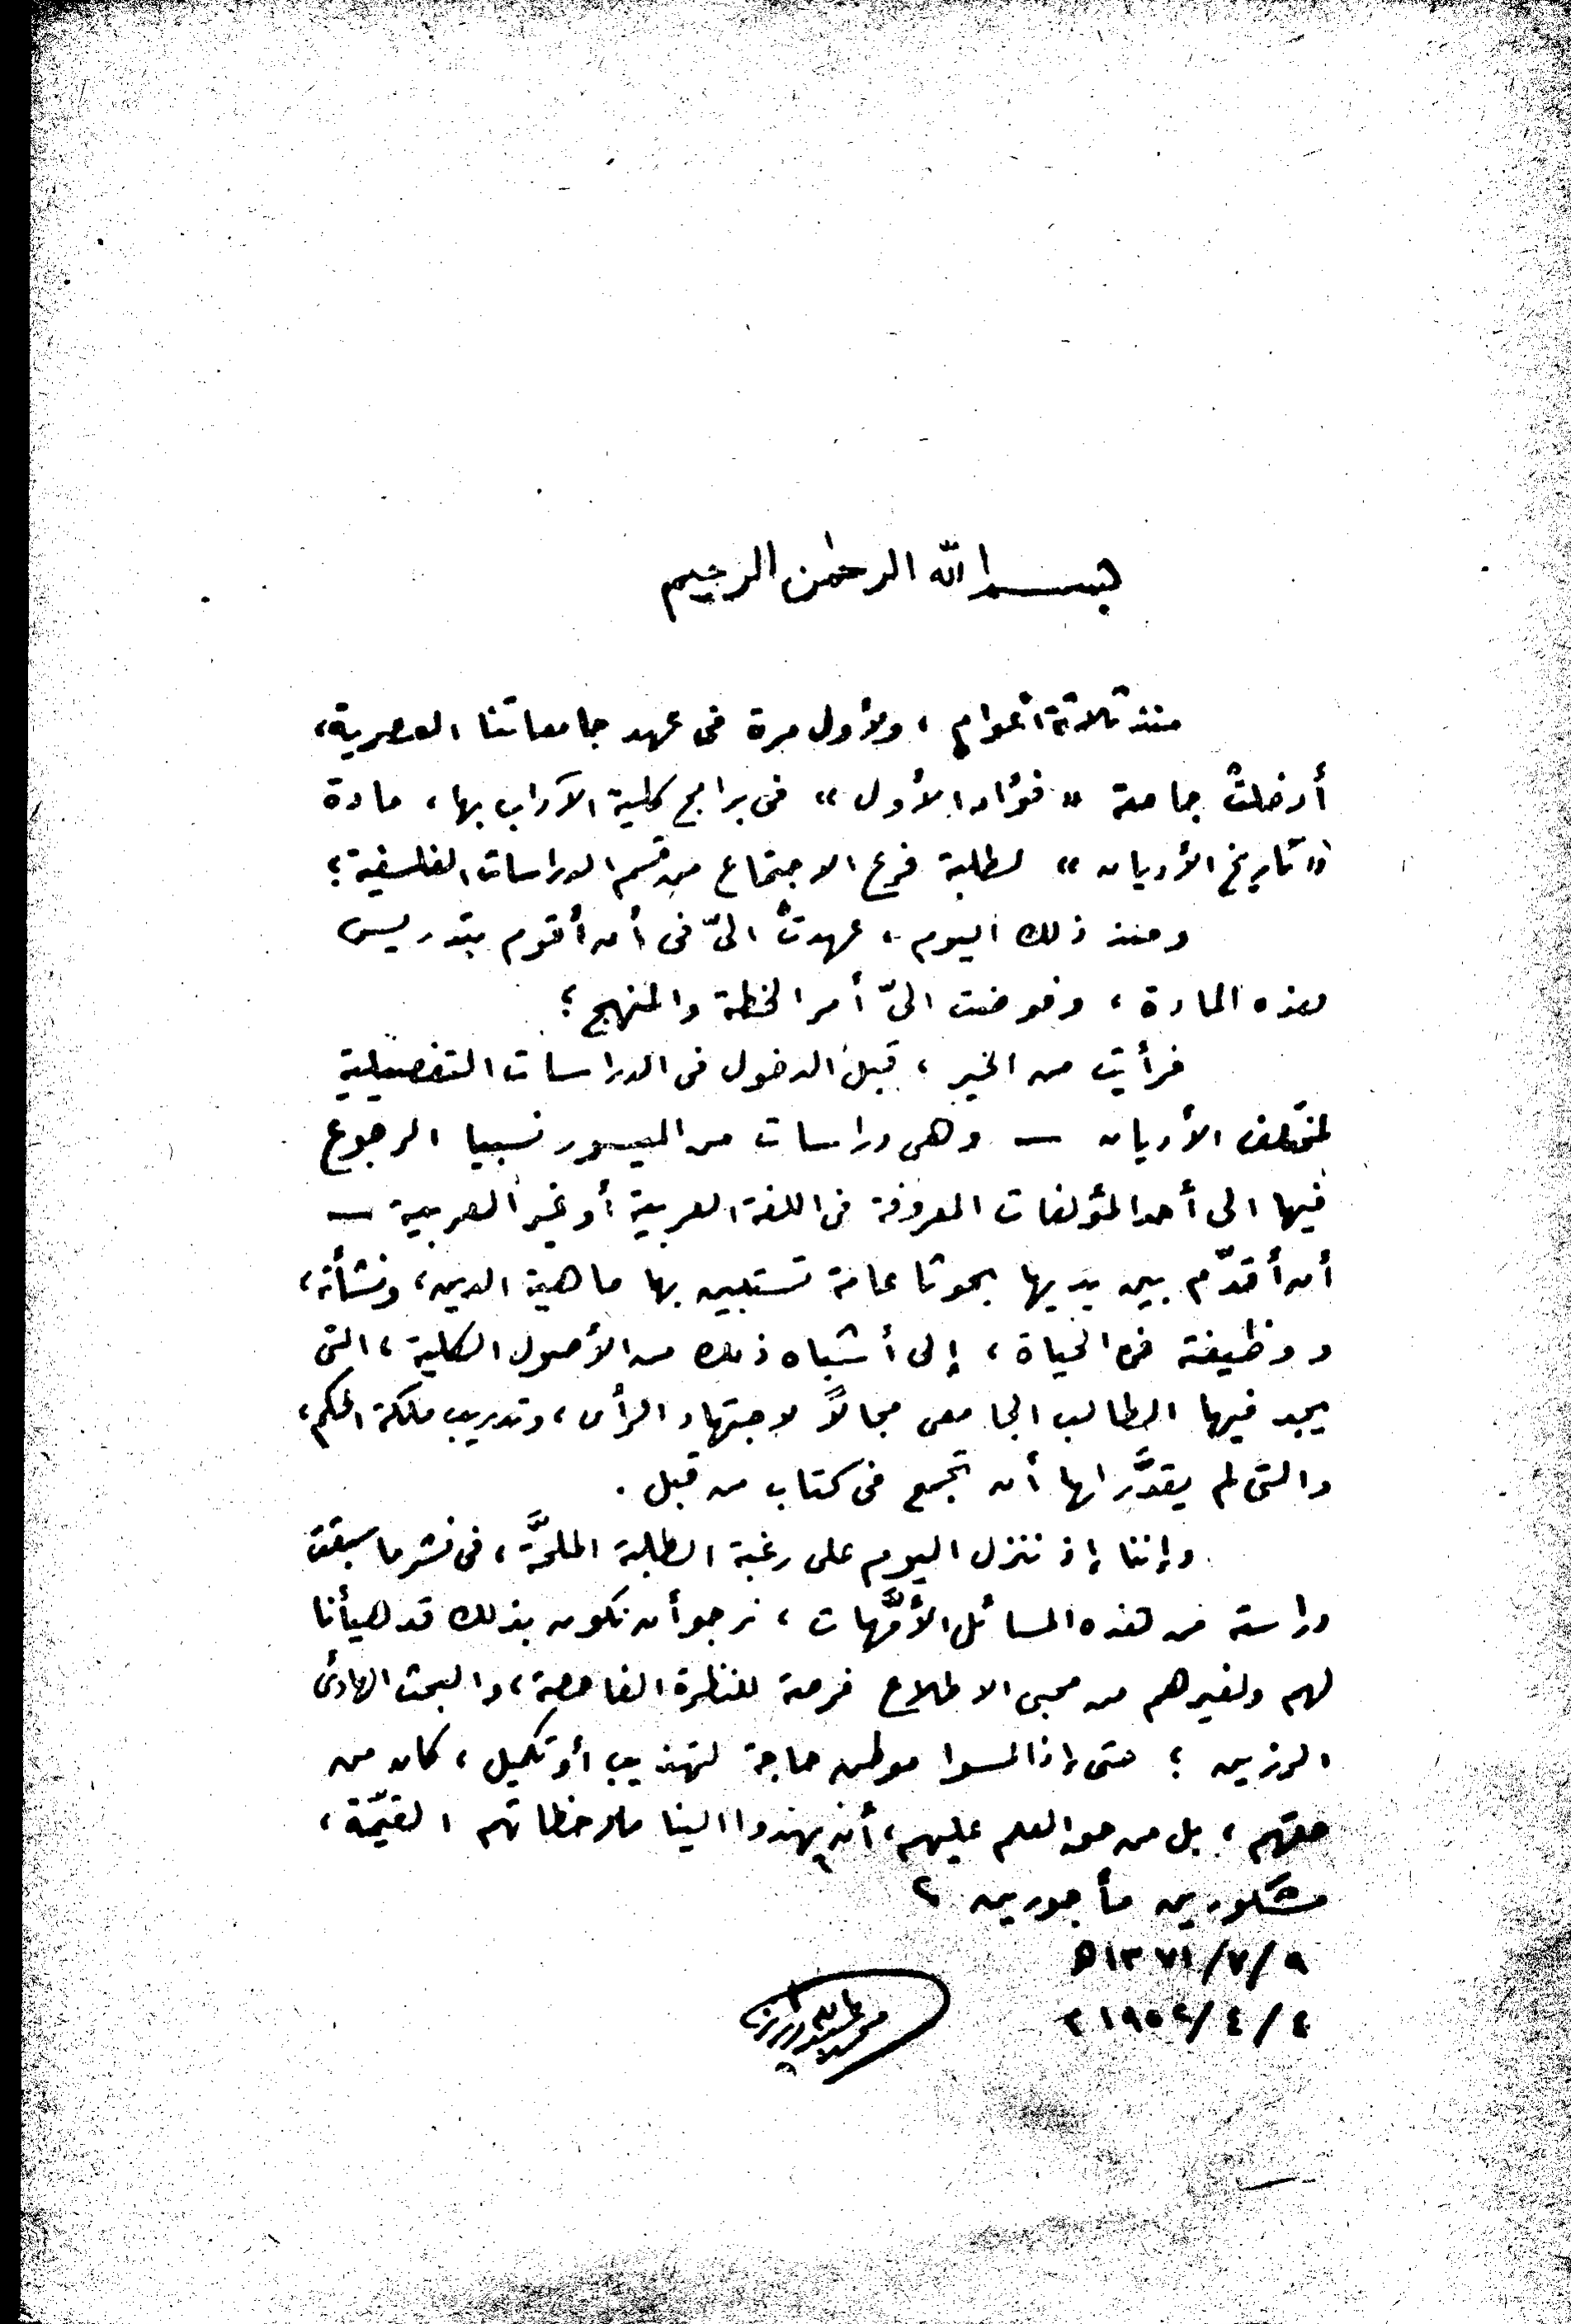 بسم الله الرحمٰن الرحيم
منذ ثلاثة أعوام ، ولأول مرة فى عهد جامعاتنا العصرية،
أدخلتْ جامعة « فؤاد الأول » فى برامج كلية الآداب بها ، مادة
« تاريخ الأديان » لطلبة فرع الاجتماع من قسم الدراسات الفلسفية ؛
ومنذ ذلك اليوم ، عهدتْ الىّ فى أن أقوم بتدريس
هذه المادة ، وفوضت الىّ أمر الخطة والمنهج ؛
فرأيت من الخير ، قبل الدخول فى الدراسات التفصيلية
لمختلف الأديان — وهى دراسات من الميسور نسبيا الرجوع
فيها الى أحد المؤلفات المعروفة فى اللغة العربية أو غير العربية —
أن أقدّم بين يديها بحوثا عامة تستبين بها ماهية الدين ، ونشأته ،
ووظيفته فى الحياة ، إلى أشباه ذلك من الأصول الكلية ، التى
يجد فيها الطالب الجامعى مجالاً لاجتهاد الرأى ، وتدريب ملكة الحكم ،
والتى لم يقدَّر لها أن تجمع فى كتاب من قبل .
وإننا إذ ننزل اليوم على رغبة الطلبة الملحَّة ، فى نشر ما سبقت
دراسته من هذه المسائل الأمَّهات ، نرجو أن نكون بذلك قد هيأنا
لهم ولغيرهم من محبى الاطلاع فرصة للنظرة الفاحصة ، والبحث الهادئ
الرزين ؛ حتى إذا لمسوا موطن حاجة لتهذيب أو تكميل ، كان من
حقهم ، بل من حق العلم عليهم ، أن يهدوا الينا ملاحظاتهم القيّمة ،
مشكورين مأجورين ؟
٩/٧/١٣٧١ ھ
٤/٤/١٩٥٢ م
محمد عبد الله دراز